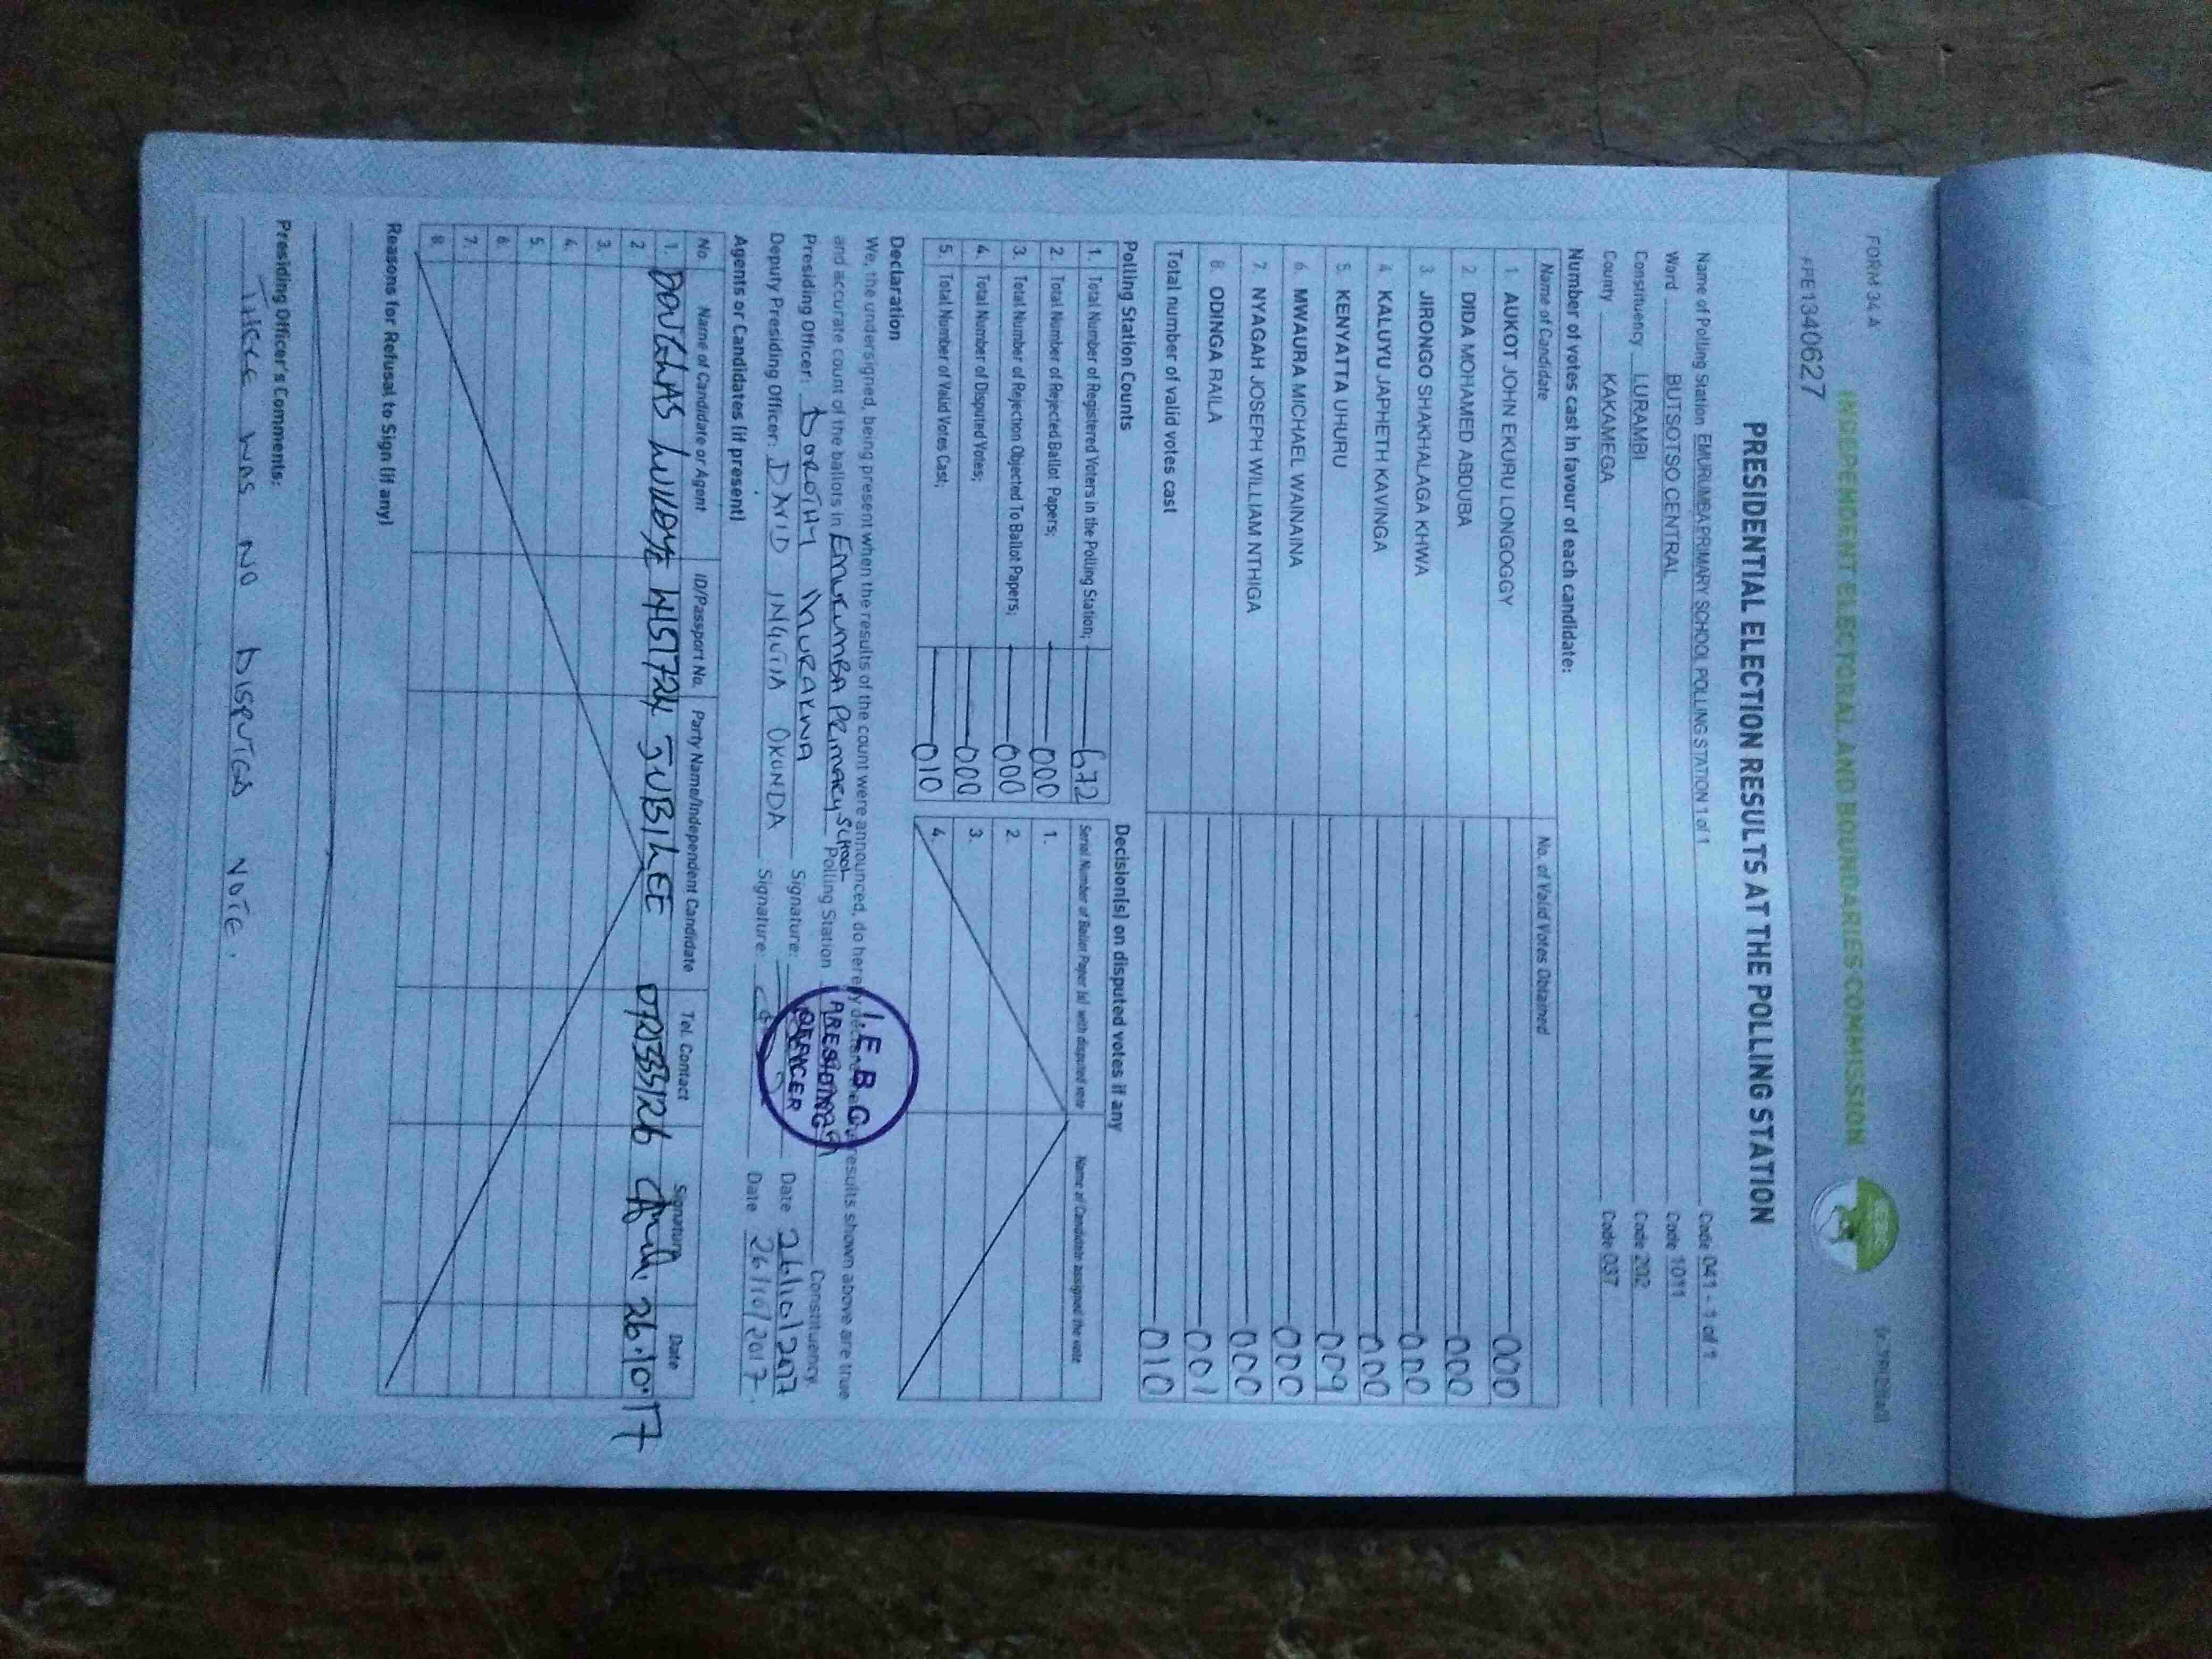 FORM 34 A
INDEPENDENT ELECTORAL AND BOUNDARIES COMMISSION
PRESIDENTIAL ELECTION RESULTS AT THE POLLING STATION
Name of Polling Station EMURUMBA PRIMARY SCHOOL POLLING STATION 1 of 1 Code 041 - 1 of 1
Ward BUTSOTSO CENTRAL Code 1011
Constituency LURAMBI Code 202
County KAKAMEGA Code 037
Number of votes cast in favour of each candidate:
Name of Candidate No. of Valid Votes Obtained
1. AUKOT JOHN EKURU LONGOGGY 000
2. DIDA MOHAMED ABDUBA 000
3. JIRONGO SHAKHALAGA KHWA 000
4. KALUYU JAPHETH KAVINGA 000
5. KENYATTA UHURU 009
6. MWAURA MICHAEL WAINAINA 000
7. NYAGAH JOSEPH WILLIAM NTHIGA 000
8. ODINGA RAILA 001
Total number of valid votes cast 010
Polling Station Counts
1. Total Number of Registered Voters in the Polling Station; 672
2. Total Number of Rejected Ballot Papers; 000
3. Total Number of Rejection Objected To Ballot Papers; 000
4. Total Number of Disputed Votes; 000
5. Total Number of Valid Votes Cast; 010
Decision(s) on disputed votes if any
Serial Number of Ballot Paper (s) with disputed vote Name of Candidate assigned the vote
1.
2.
3.
4.
Declaration
We, the undersigned, being present when the results of the count were announced, do hereby declare results shown above are true
and accurate count of the ballots in EMURUMBA PRIMARY SCHOOL Polling Station Constituency.
Presiding Officer: DOROTHY MURAKWA Signature: Date 26/10/2017
Deputy Presiding Officer: DAVID INGUTIA OKUNDA Signature: Date 26/10/2017.
I.E.B.C.
PRESIDING
OFFICER
Agents or Candidates (if present)
No. Name of Candidate or Agent ID/Passport No. Party Name/Independent Candidate Tel. Contact Signature Date
1. DOUGLAS JUBILEE 26.10.17
2
3.
4.
5.
6.
7.
8.
Reasons for Refusal to Sign (if any)
Presiding Officer's Comments:
THERE WAS NO DISPUTED VOTE.